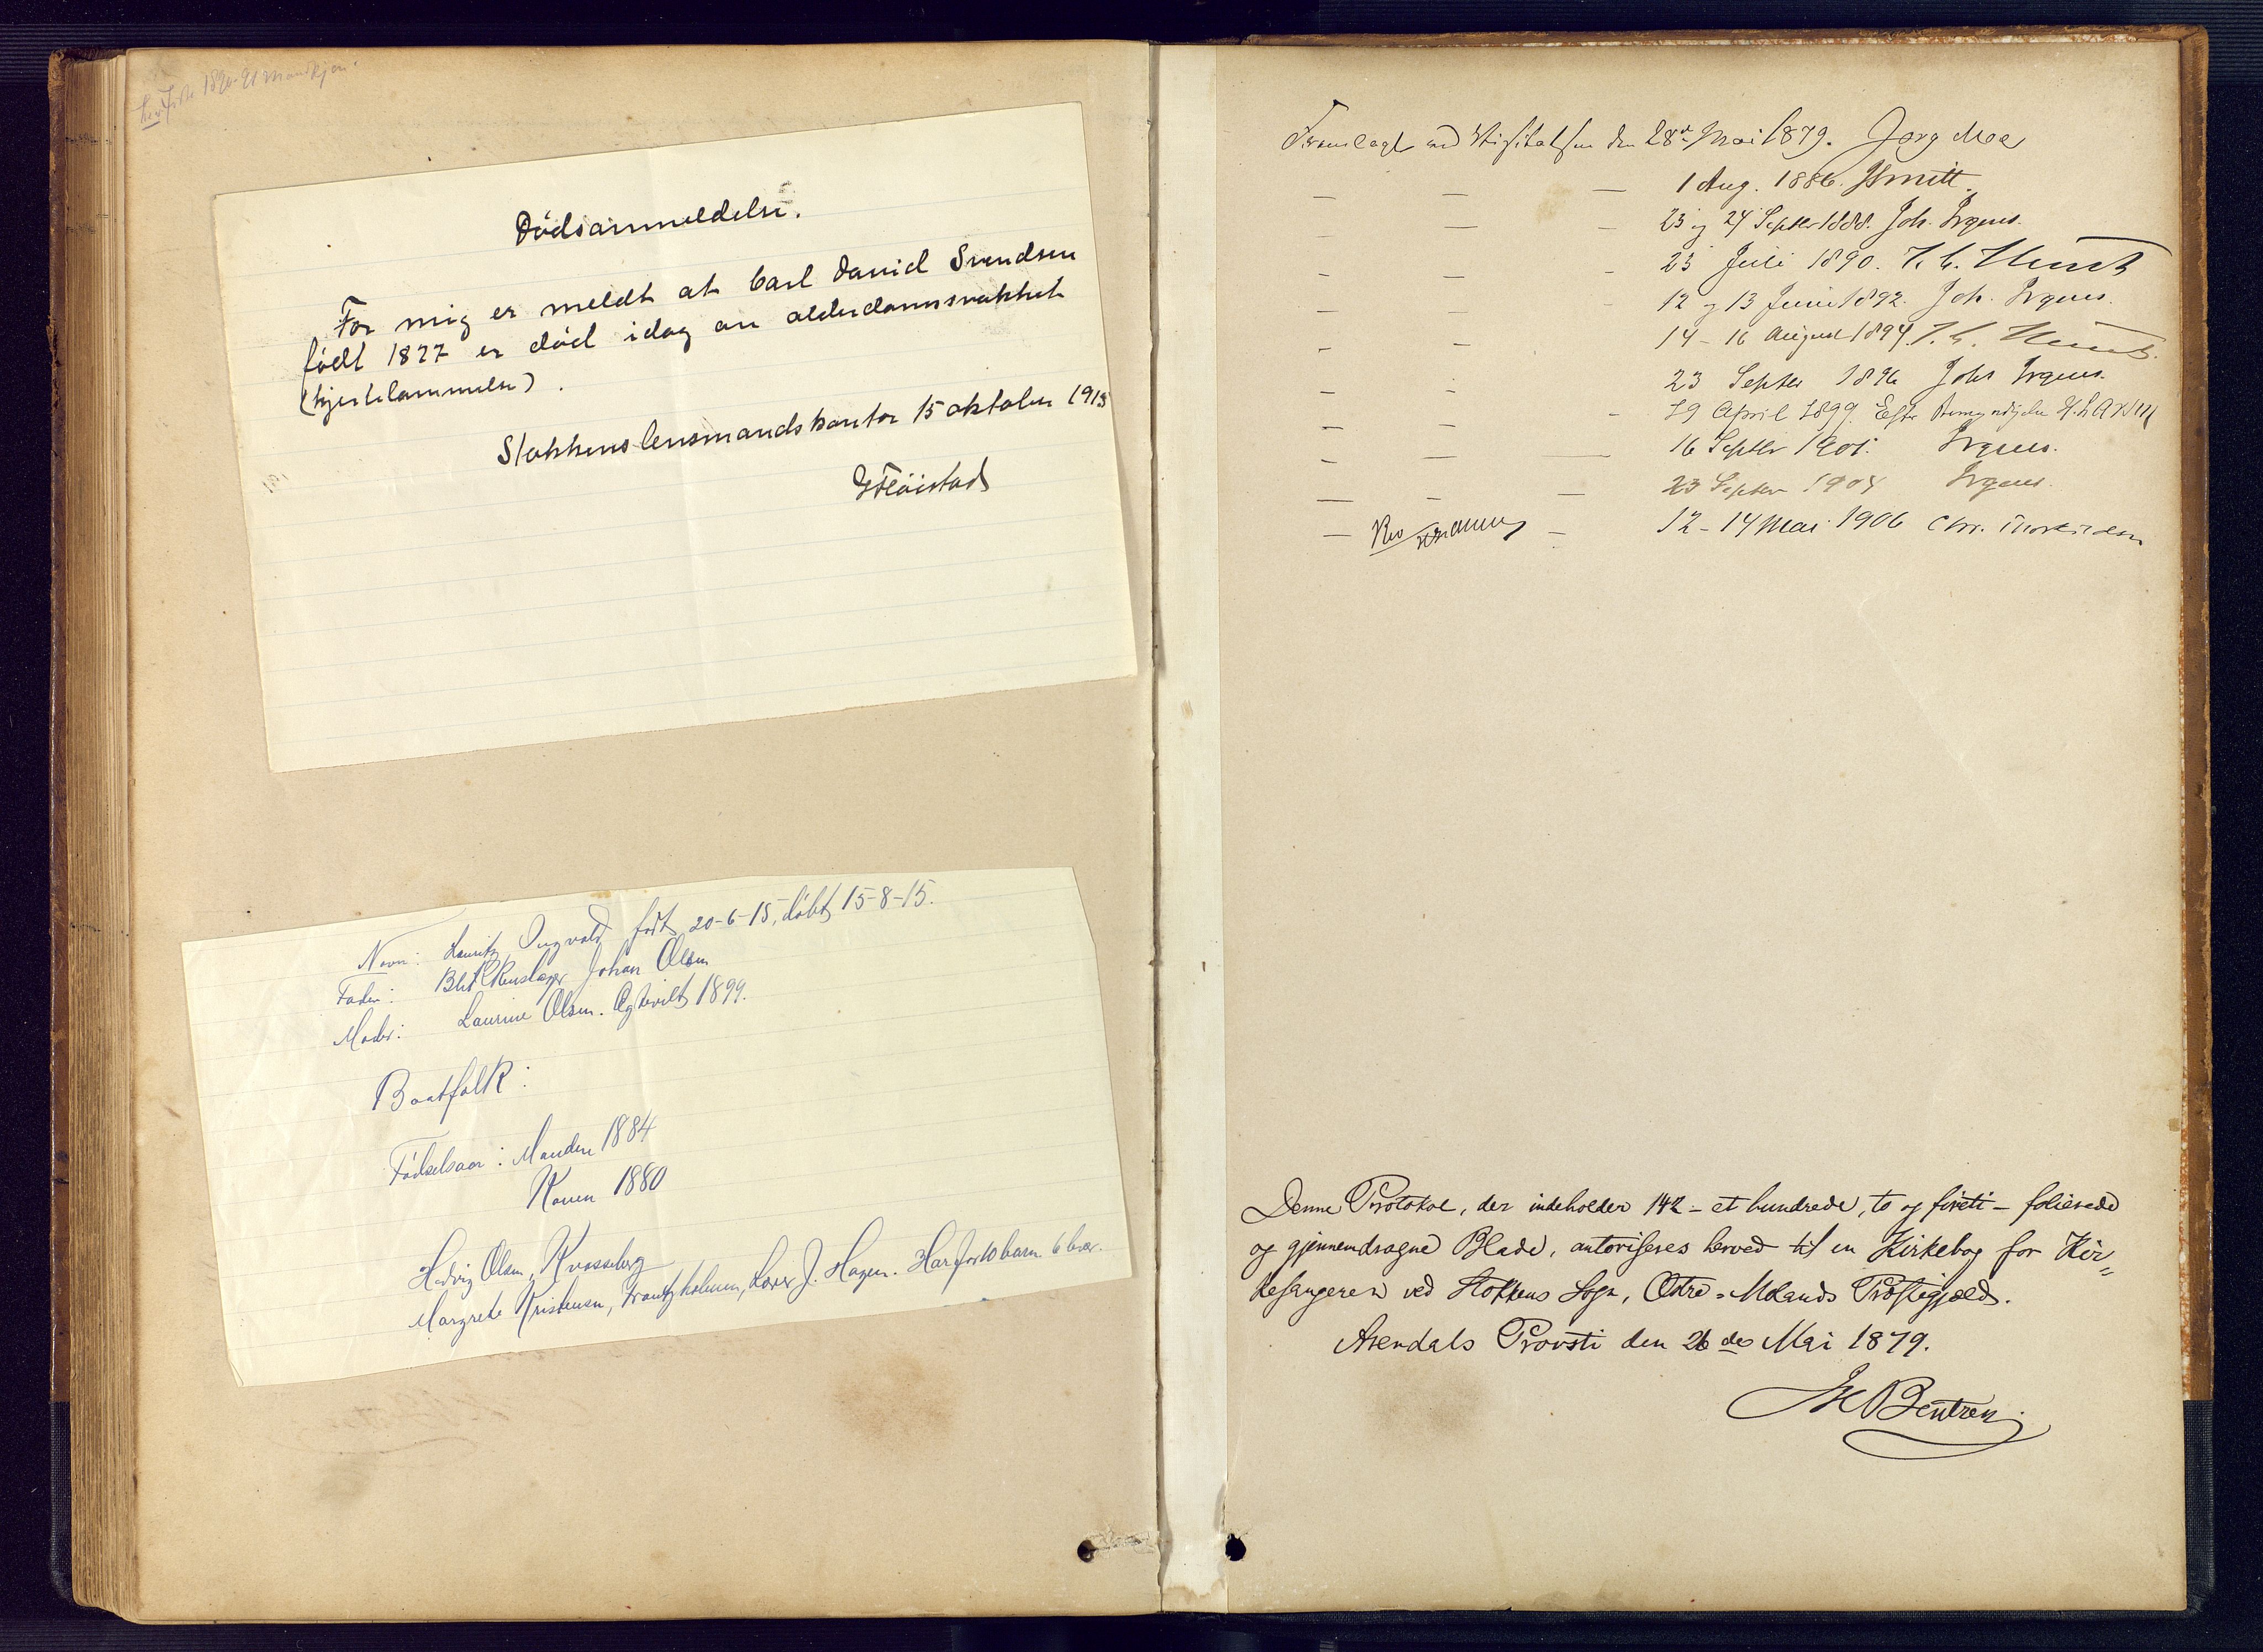 1890-91
Dødsanmeldelse.
For mig er meldt at Carl David Svendsen
født 1827 er død idag av alderdomssvakhet
(hjertelammelse).
Stokkens lensmandskontor 15 oktober 1915
Fløistad
Navn: Lauritz Ingvald født 20-6-15, døbt 15-8-15.
Fader: Blikkenslager Johan Olsen
Moder: Laurine Olsen. Ægteviet 1899.
Baatfolk:
Fødselsaar: Manden 1884
Konen 1880
Hedvig Olsen, Kvasseberg
Margrete Kristensen, Frantzholmen, Lærer J. Hagen. Har født 10 barn 6 lever.
Fremlagt ved Visitatsen den 28de Mai 1879. Jørg Moe
— — — 1 Aug. 1886. JSmitt.
— — — 23 og 24 Septbr 1888. Joh. Irgens.
— — — 23 Juli 1890. Hunst
— — — 12 og 13 Juni 1892. Joh. Irgens.
— — 14-16 August 1894.
— — 23 Septbr 1896 Johs Irgens.
— — — 19 April 1899. Efter
— — — 16 Septbr 1901. Irgens.
— — — 23 Septbr 1904 Irgens.
— — 12-14 Mai 1906 Chr.
Denne Protokol, der indeholder 142 - et hundrede, to og fireti - folierede
og gjennemdragne Blade, autoriseres herved til en Kirkebog for Kir-
kesangeren ved Stokkens Sogn, Østre-Molands Præstegjæld.
Arendals Provsti den 26de Mai 1879.
Bentzen